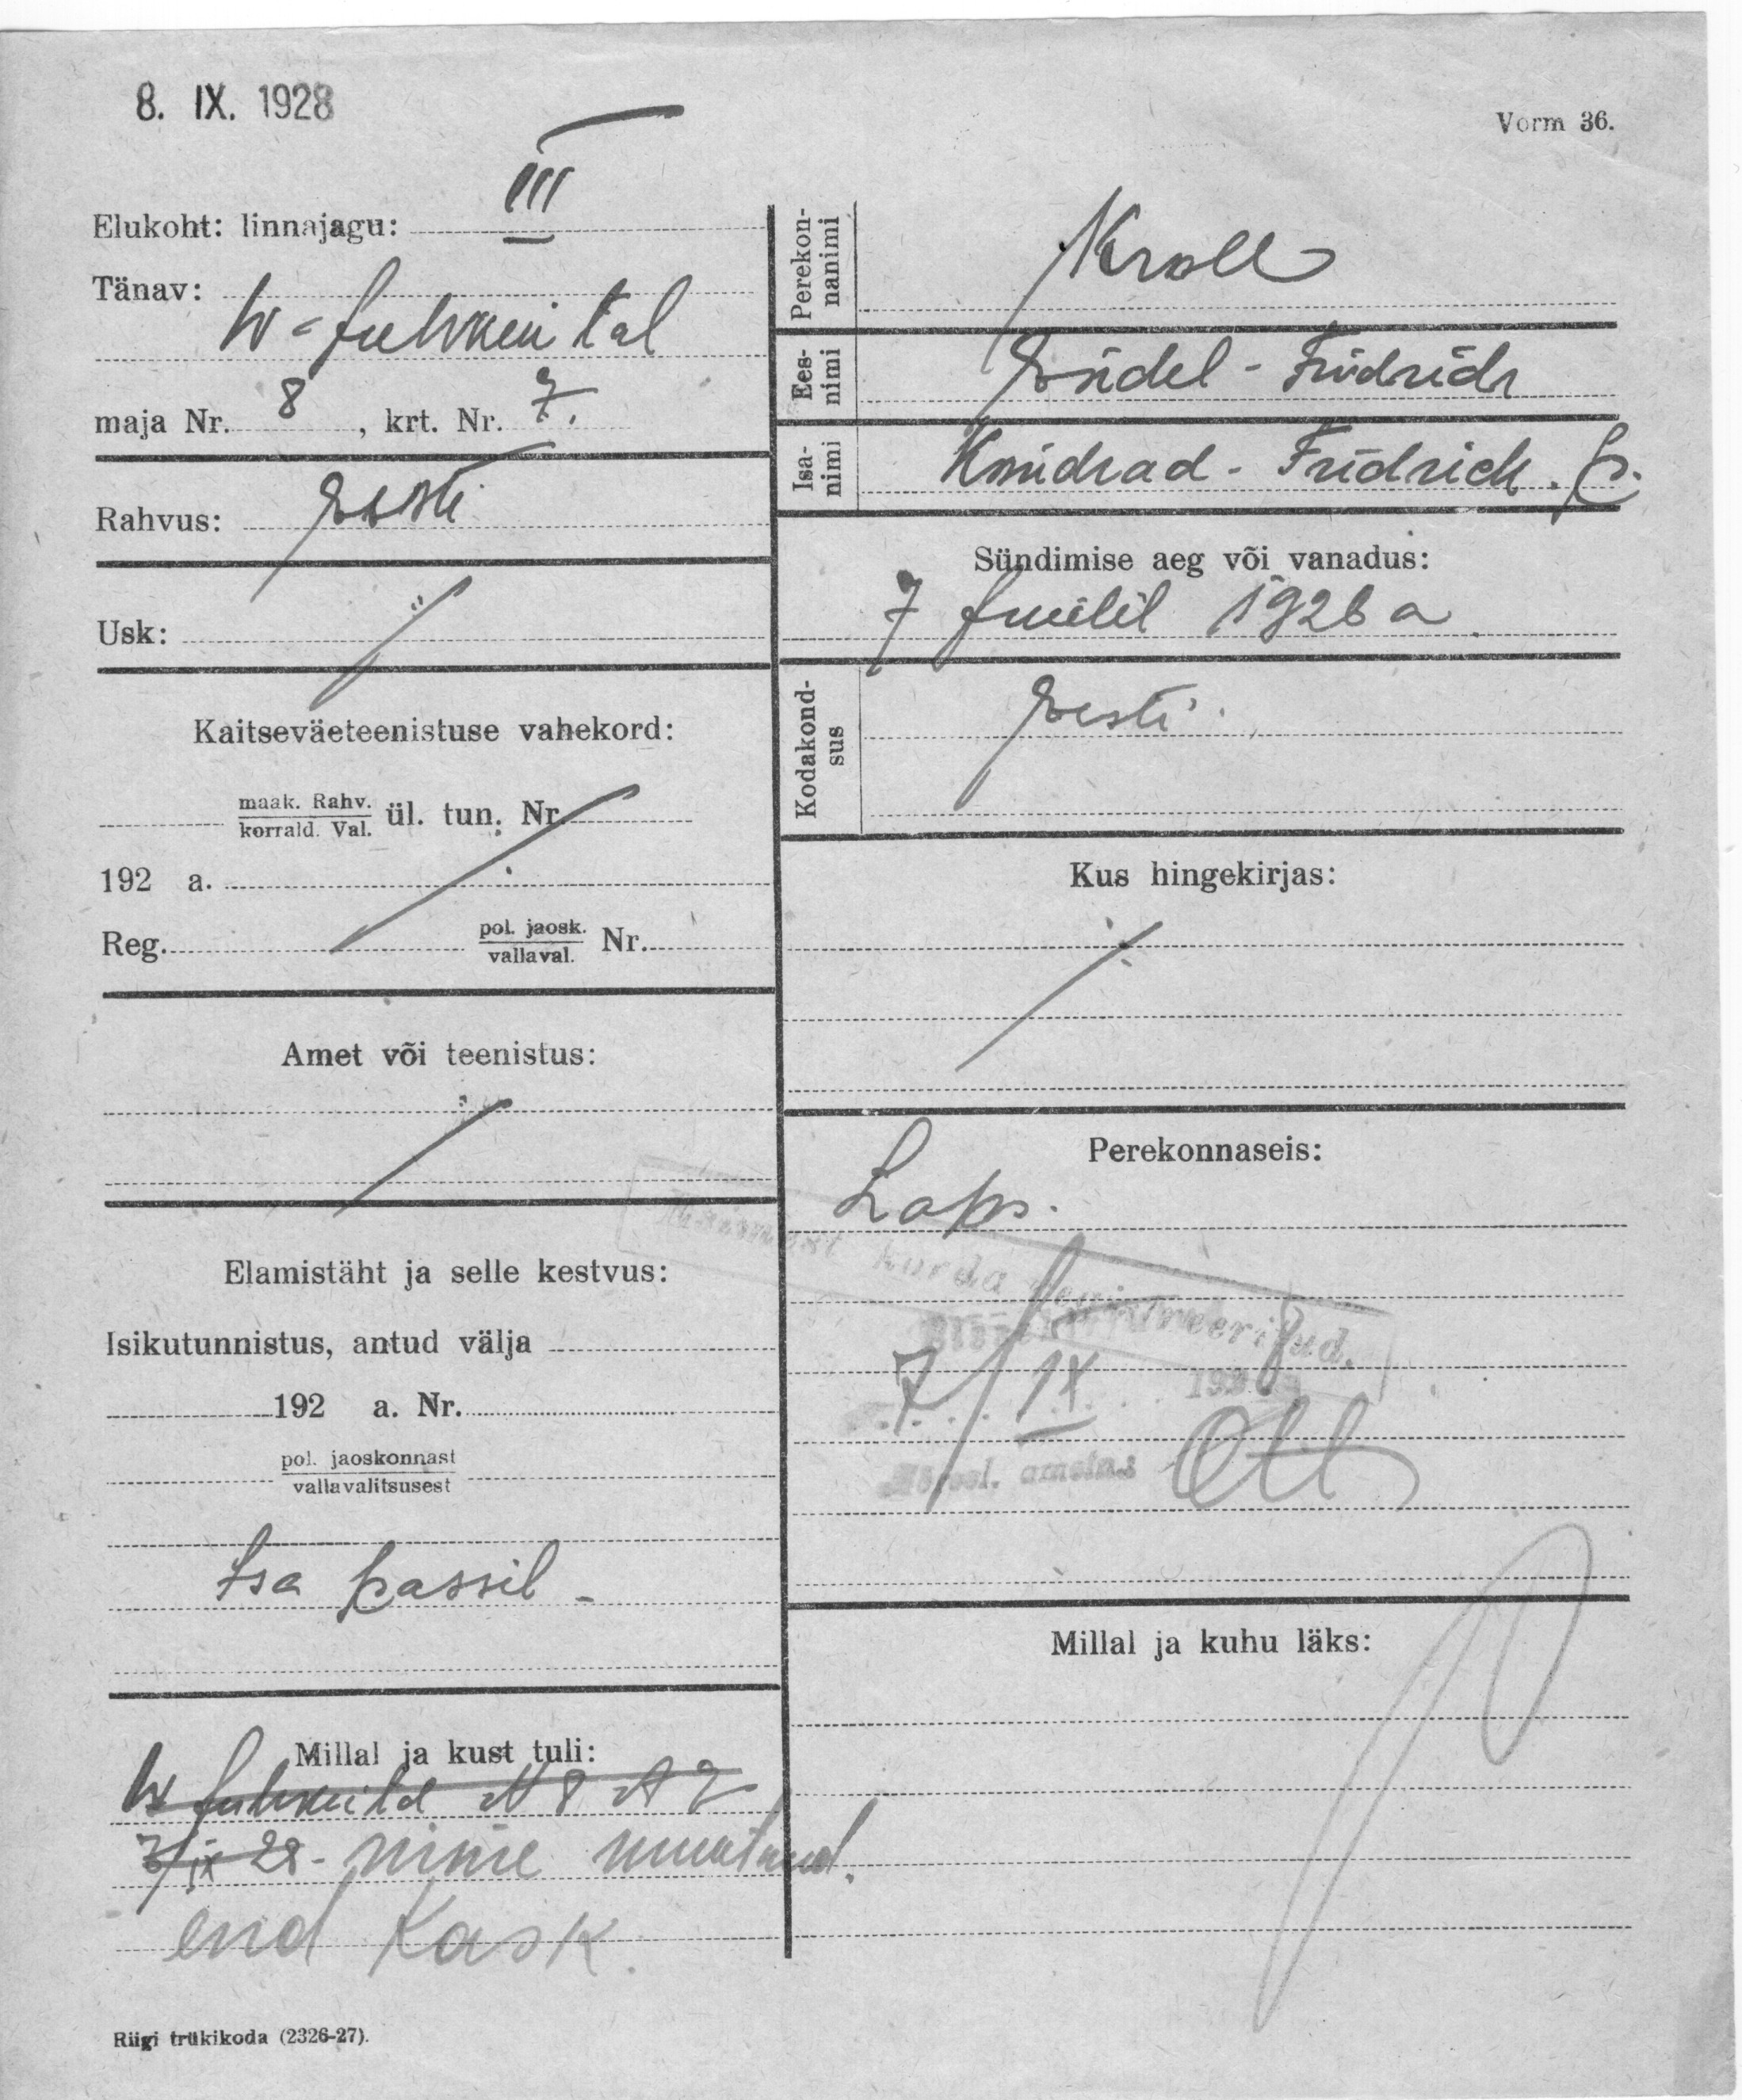 8. IX. 1928
Vorm 36.
Elukoht: linnajagu: III
Tänav:
W-Juhkental
maja Nr. 8, krt. Nr. 7.
Rahvus: Eesti
Usk:
Kaitseväeteenistuse vahekord:
maak. Rahv.
korrald. Val.
ül. tun. Nr.
192 a.
Reg. pol. jaosk.
vallaval. Nr.
Amet või teenistus:
Elamistäht ja selle kestvus:
Isikutunnistus, antud välja
192 a. Nr.
pol. jaoskonnast
vallavalitsusest
Isa passil -
Millal ja kust tuli:
W Juhkental N 8 N 7
7/IX 28 - nime muutnud.
end Kask.
Riigi trükikoda (2326-27).
Perekon-
nanimi
Kroll
Ees-
nimi
Endel - Friidrich
Isa-
nimi
Friidrich. p.
Sündimise aeg või vanadus:
7 Juulil 1926 a.
Kodakond-
sus
Eesti.
Kus hingekirjas:
Perekonnaseis:
Laps.
Esimest korda registreeritud.
7/IX 1928
ametnik
Millal ja kuhu läks: